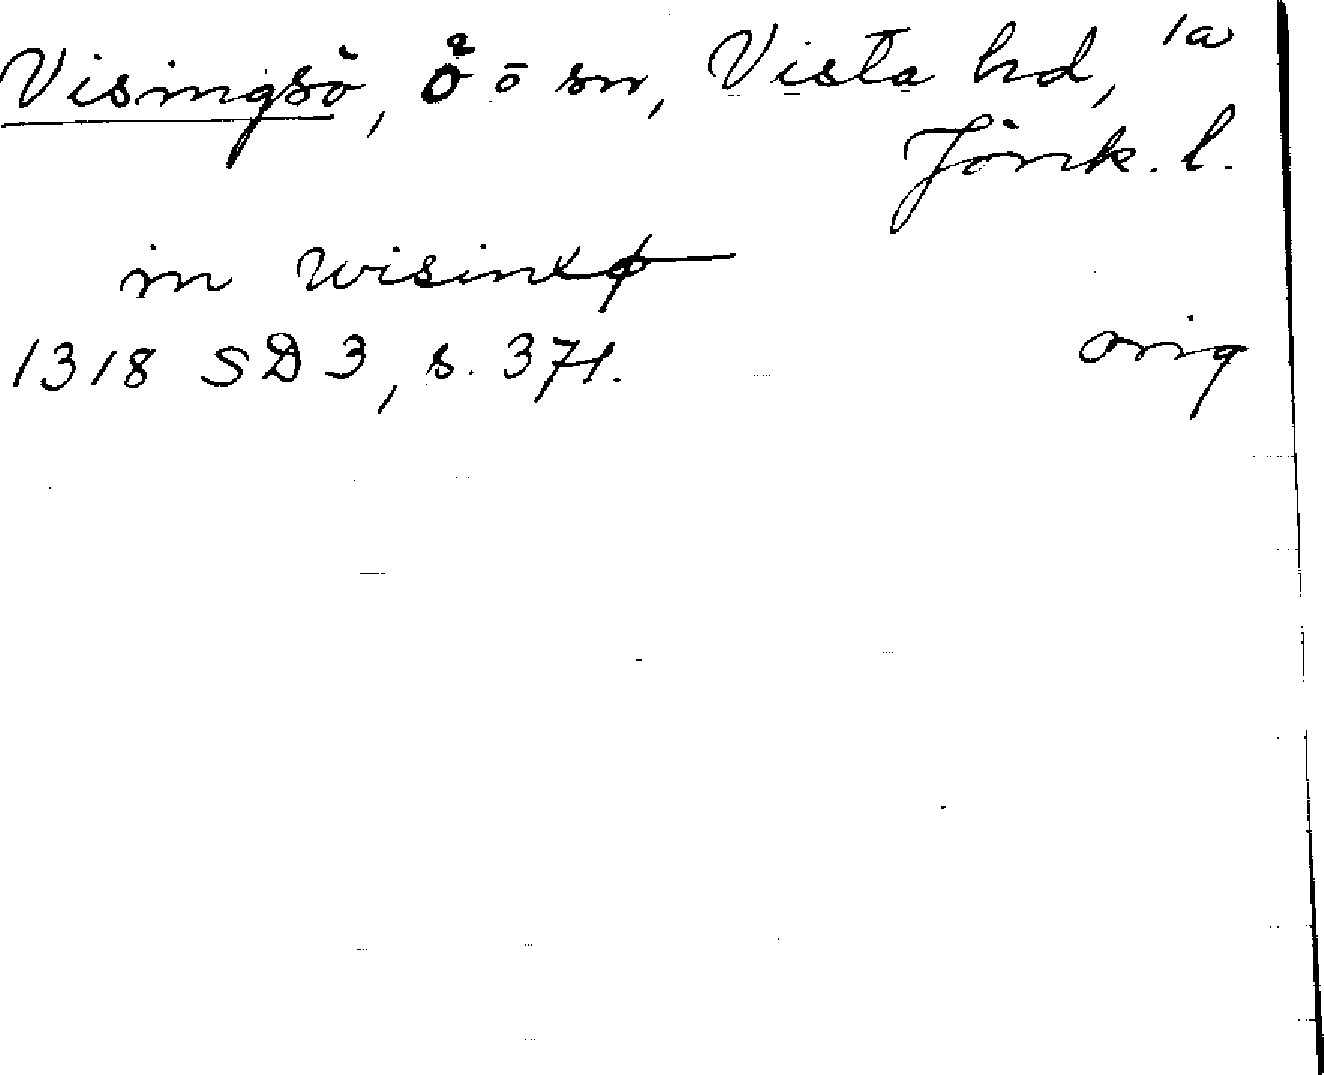 Visingsö, ö o sn, Vista hd, 1a
Jönk. l.
in wisinxø
1318 SD 3, s. 371.
orig